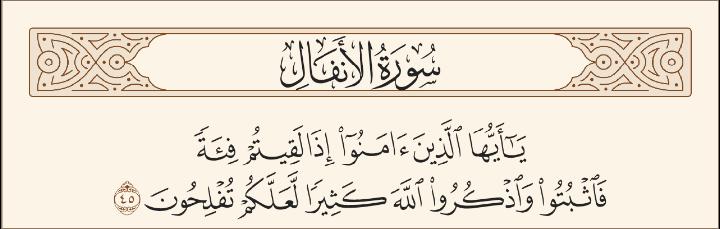 سُورَةُ الأَنفَالِ
يَـٰٓأَيُّهَا ٱلَّذِينَ ءَامَنُوٓا۟ إِذَا لَقِيتُمْ فِئَةً
فَٱثْبُتُوا۟ وَٱذْكُرُوا۟ ٱللَّهَ كَثِيرًا لَّعَلَّكُمْ تُفْلِحُونَ ٤٥